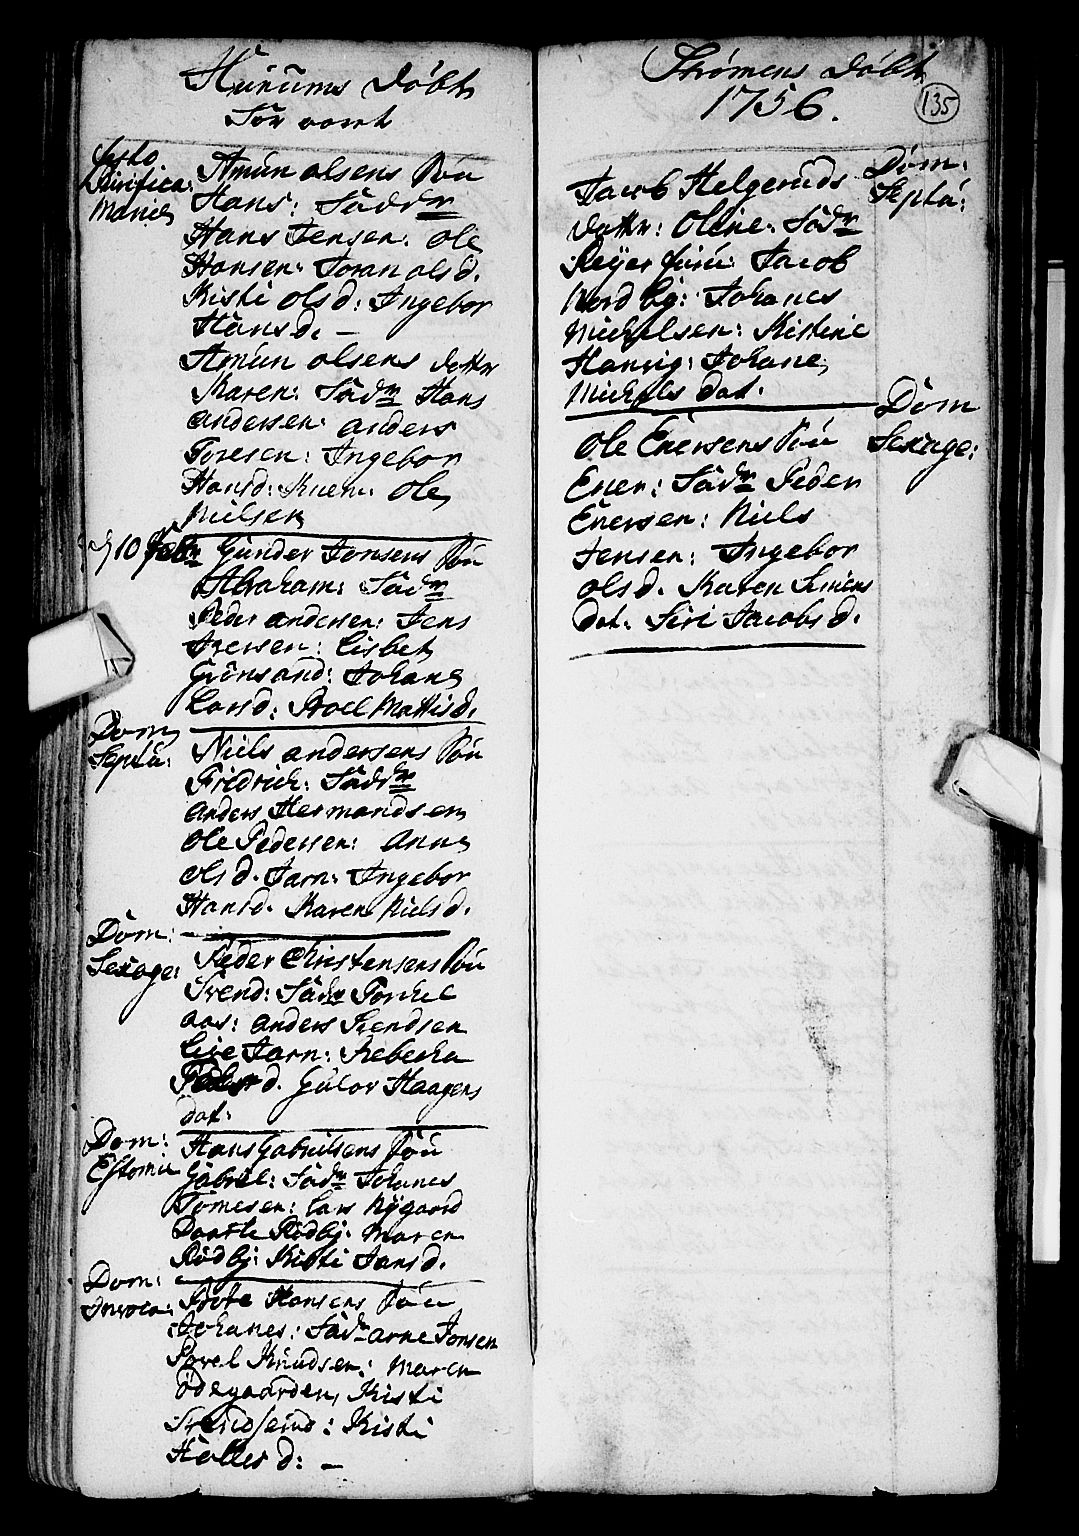 Hurums Døbte
Før aaret
festo
Purifica:
Mariæ
Amun olsens Søn
Hans: Faddr
Hans Jensen: ole
Hansen: Joran olsd.
Kisti olsd: Ingebor
Hansd. –
Amun olsens datter
Karen: Fadr Hans
andersen: anders
Toresen: Ingebor
Hansd: Karen: Ole
Nielsen
10 Febr Gunder Jonsens Søn
Abraham: Fadr
Peder andersen: Jens
Iversen: Lisbet
Grönsand: Johane
Larsd: Roel Mattisd.
Dom
Septu:
Niels andersens Søn
Fridrich: Faddr
anders Hermandsen
Ole Pedersen: Anne
olsd. Tarn: Ingebor
Hansd. Karen Nielsd.
Dom:
Sexage:
Peder Christensens Søn
Svend: Fadr Torkel
aas: anders Svendsen
Lise Tarn: Rebecka
Pedersd. Gulov Haagens
dat:
Dom:
Estomi
Hans Gabrielsens Søn
Gabriel: Fadr Johanes
Tomesen: Lars Nygaard
Daarte Rødby: Maren
Rødby: Kisti Jansd.
Dom:
Invoca:
Trote Hansens Søn
Johanes: Fadr Arne Jonsen
Povel Knudsen: Maren
Ødegaarden, Kisti
Svendsend: Kisti
Halles d: –
Strømens Døbte
1756.
135
Dom:
Septu:
Jacob Helgeruds
datter: Oline: Fadr
Reyer furu: Jacob
Nordby: Johanes
Michelsen: Kistine
Hansig: Johane
Michels dat.
Dom
Sexage:
Ole Enersens Søn
Ener: Fadr Peder
Enersen: Niels
Jensen: Ingebor
olsd. Karen Simens
dat. Siri Jacobsd.